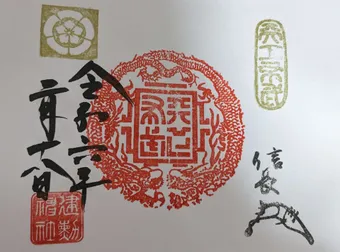 天下布武
信長
天下布武
令和六年
二月十八日
建勲
神社